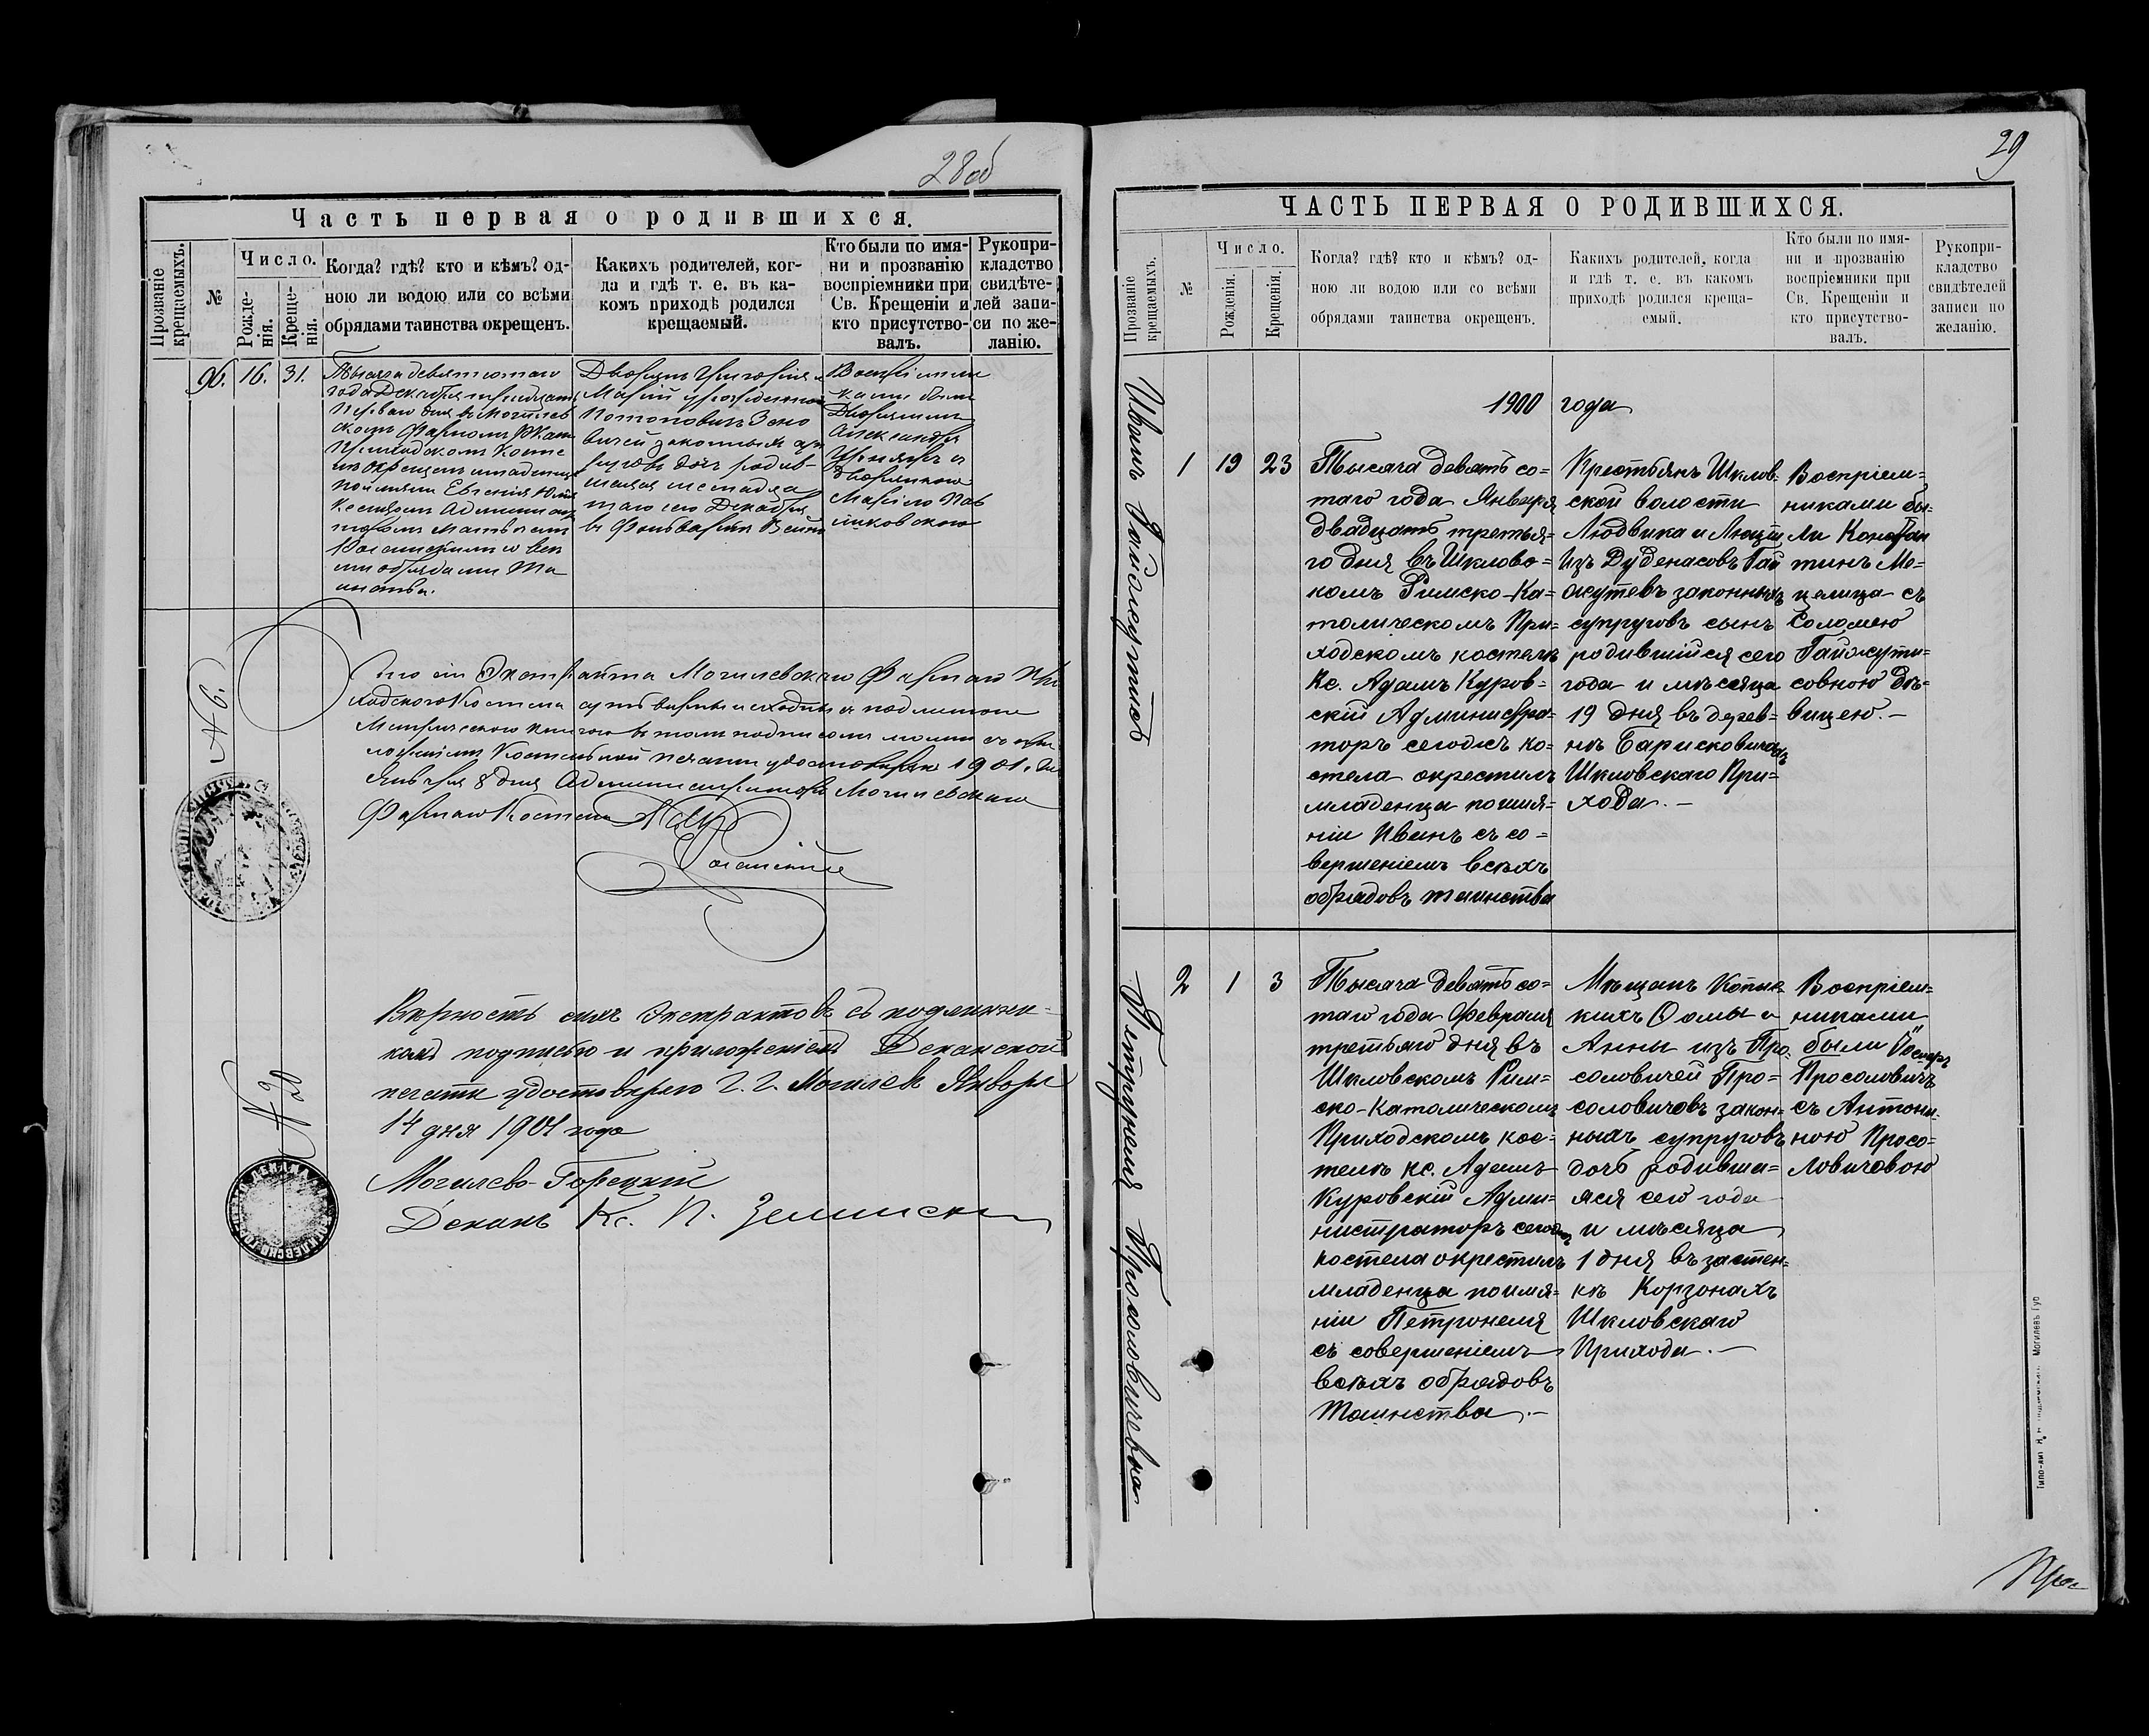 28 об
Часть первая о родившихся.
Прозваніе крещаемыхъ.
№
Число.
Рожде-
нія.
Креще-
нія.
Когда? гдѣ? кто и кѣмъ? од-
ною ли водою или со всѣми
обрядами таинства окрещенъ.
Какихъ родителей, ког-
да и гдѣ т. е. въ ка-
комъ приходѣ родился
крещаемый.
Кто были по имя-
ни и прозванію
воспріемники при
Св. Крещеніи и
кто присутство-
валъ.
Рукопри-
кладство
свидѣте-
лей запи-
си по же-
ланію.
96. 16. 31.
Тысяча девятисотаго
года Декабря тридцать
Перваго дня въ Могилев
скомъ Фарномъ РКат
Приходскомъ Косте
лѣ окрещенъ младенецъ
по имяни Евгенія
Администра
торомъ
со все
ми обрядами Та
инства.
Дворянъ Григорія и
Маріи урожденной
Потоповичъ Зено
вичей законныхъ суп
руговъ дочь родив-
шаяся шестнадца
таго сего Декабря
въ Фольваркѣ
Воспріемни
ками были
Дворянинъ
Александръ
и
Дворянкою
Маріею Пав
ликовскою
№ 6.
Что сіи Экстракта Могилевскаго Фарнаго При
ходского Костела суть вѣрны и сходны съ подлинною
Метрическою книгою въ томъ подписомъ моимъ съ при
ложеніемъ Костельной печати удостовѣряю 1901 г.
Января 8 дня Администраторъ Могилевскаго
Фарнаго Костела
№ 20
Вѣрность сихъ Экстрактовъ съ подлинни-
комъ подписью и приложеніемъ Деканской
печати удостовѣряю Г. Г. Могилев Января
14 дня 1901 года
Могилево-Горецкій
Деканъ Кс. П. Зелински
29
ЧАСТЬ ПЕРВАЯ О РОДИВШИХСЯ.
Прозваніе крещаемыхъ.
№
Число.
Рожденія.
Крещенія.
Когда? гдѣ? кто и кѣмъ? од-
ною ли водою или со всѣми
обрядами таинства окрещенъ.
Какихъ родителей, когда
и гдѣ т. е. въ какомъ
приходѣ родился креща-
емый.
Кто были по имя-
ни и прозванію
воспріемники при
Св. Крещеніи и
кто присутство-
валъ.
Рукопри-
кладство
свидѣтелей
записи по
желанію.
1900 года
Иванъ Гайжутисъ
1 19 23
Тысяча девять со=
таго года Января
двадцать третья=
го дня въ Шклово=
комъ Римско-Ка=
толическомъ При=
ходскомъ костелѣ
Кс. Адамъ Куров=
скій Администра=
торъ сегожъ ко=
стела окрестилъ
младенца по имя=
ніи Иванъ съ со=
вершеніемъ всѣхъ
обрядовъ таинства
Крестьянъ Шклов=
ской волости
Людвика и Люціи
изъ Дуденасовъ Гай
жутевъ законныхъ
супруговъ сынъ
родившійся сего
года и мѣсяца
19 дня въ дерев=
нѣ Барисковичахъ
Шкловскаго При=
хода.—
Воспріем=
никами бы=
ли Констан
тинъ Ме=
целица съ
Соломею
Гайжути=
совною дѣ=
вицею.—
Петрунеля Просоловичевна
2 1 3
Тысяча девять со=
таго года Февраля
третьяго дня въ
Шкловскомъ Рим=
ско-Католическомъ
Приходскомъ кос=
телѣ кс. Адамъ
Куровскій Адми=
нистраторъ сегожъ
костела окрестилъ
младенца по имя=
ніи Петронеля
съ совершеніемъ
всѣхъ обрядовъ
Таинства.—
Мѣщанъ Копыс=
кихъ Ѳомы и
Анны изъ Про=
соловичей Про=
соловичовъ закон=
ныхъ супруговъ
дочь родивша=
яся сего года
и мѣсяца
1 дня въ застен=
кѣ Корзонахъ
Шкловскаго
Прихода.—
Воспріем=
никами
были Іосифъ
Просоловичъ
съ Антони=
ною Просо=
ловичовою
Про=